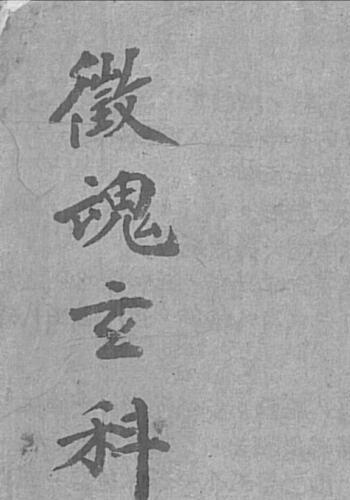 徵魂玄科